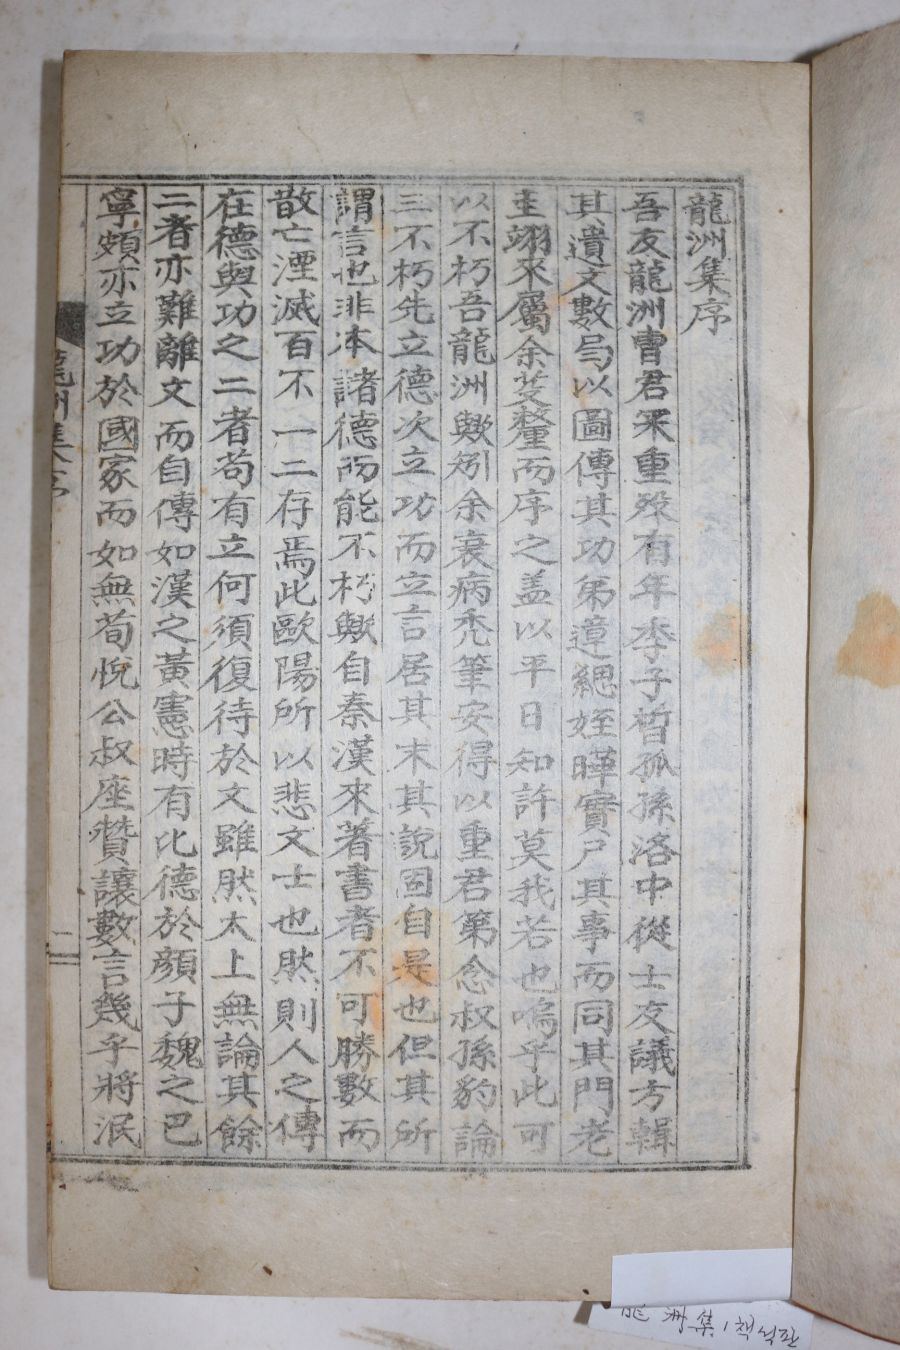 龍洲集序
吾友龍洲曹君采重歿有年李子晳孤孫洛中從士友議方輯
其遺文數局以圖傳其功弟遑緦姪曄實尸其事而同其門老
圭翊來屬余芟釐而序之盖以平日知許莫我若也嗚乎此可
以不朽吾龍洲歟矧余衰病禿筆安得以重君第念叔孫豹論
三不朽先立德次立功而立言居其末其說固自是也但其所
謂言也非本諸德而能不朽歟自秦漢來著書者不可勝數而
散亡湮滅百不一二存焉此歐陽所以悲文士也然則人之傳
在德與功之二者苟有立何須復待於文雖然太上無論其餘
二者亦難離文而自傳如漢之黃憲時有比德於顔子魏之巴
寧頗亦立功於國家而如無荀悅公叔座贊讓數言幾乎將泯
龍洲集序
一
龍洲集 1책 석판